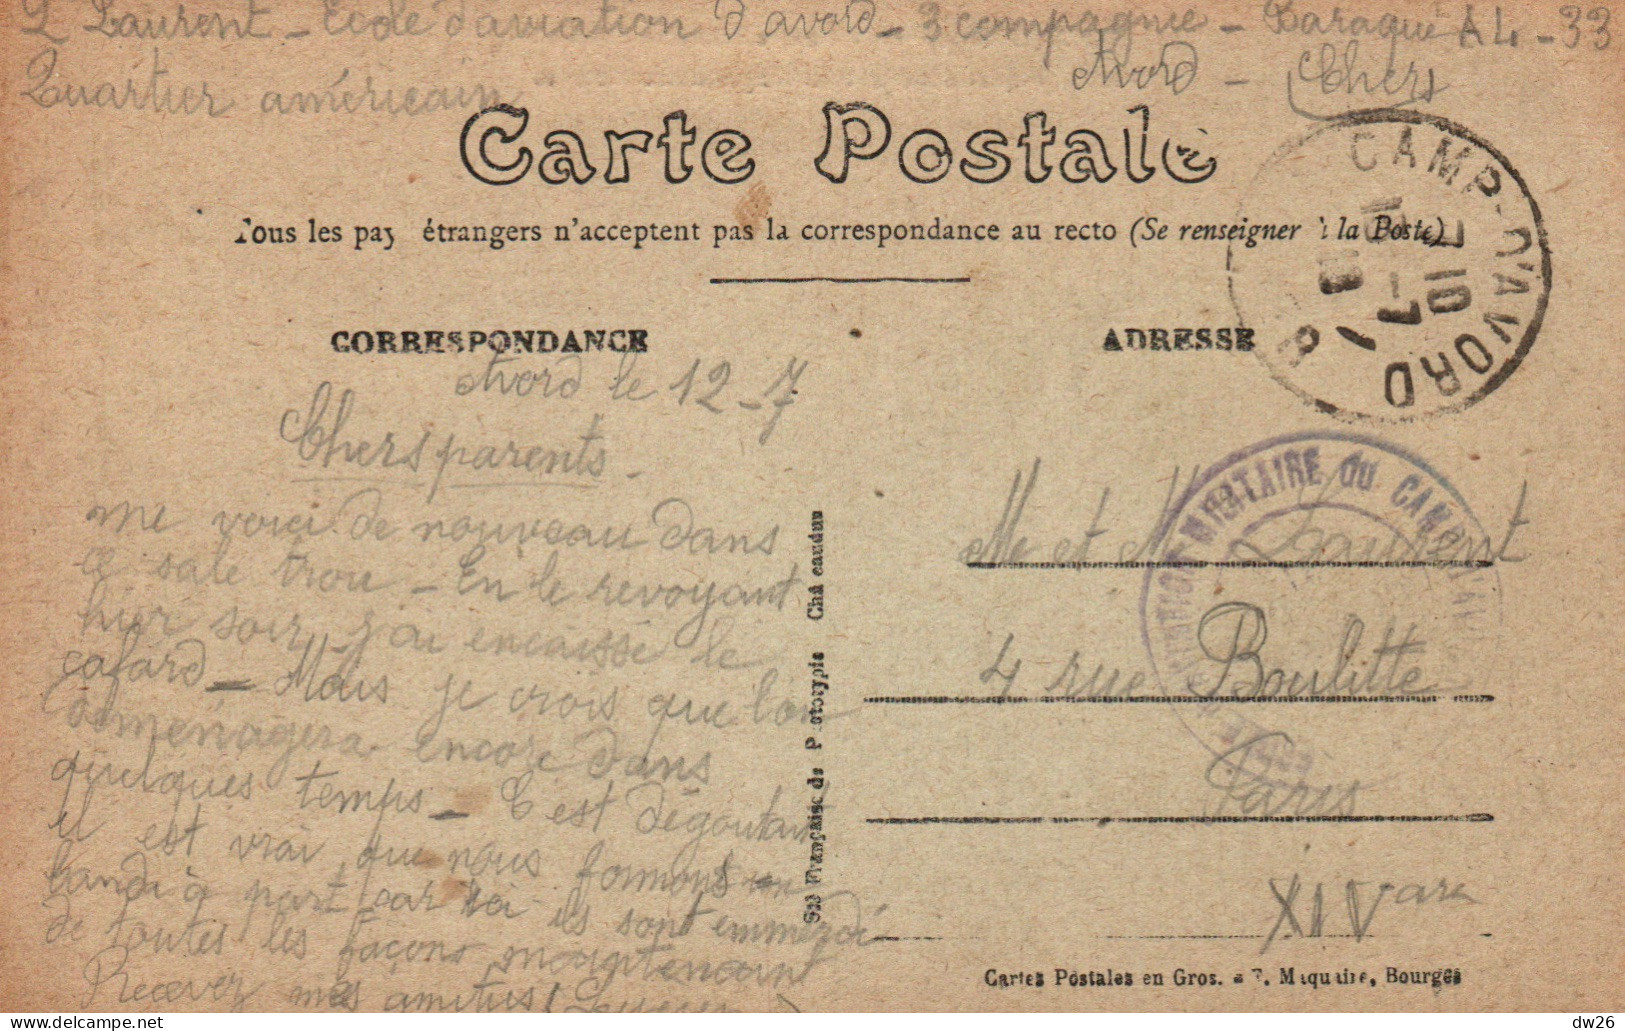 L Laurent - Ecole d'aviation d'avord - 3 compagnie - Baraque A 4 - 33
Quartier américain
Avord - Cher
Carte Postale
Tous les pays étrangers n'acceptent pas la correspondance au recto (Se renseigner à la Poste)
CAMP-D'AVORD
CORRESPONDANCE
ADRESSE
Avord le 12-7
Chers parents -
me voici de nouveau dans
ce sale trou - En le revoyant
hier soir j'ai encaissé le
cafard - Mais je crois que l'on
déménagera encore dans
quelques temps - C'est dégoutant
il est vrai que nous formons un
bandi à part car ici ils sont emmerdé
de toutes les façons maintenant
Recevez mes amitiés
Sté Française de Phototypie Châteaudun
MILITAIRE DU CAMP D'AV
Mr et Me Laurent
4 rue Boulitte
Paris
XIV arr
Cartes Postales en Gros. - F. Maquaire, Bourges
dw26